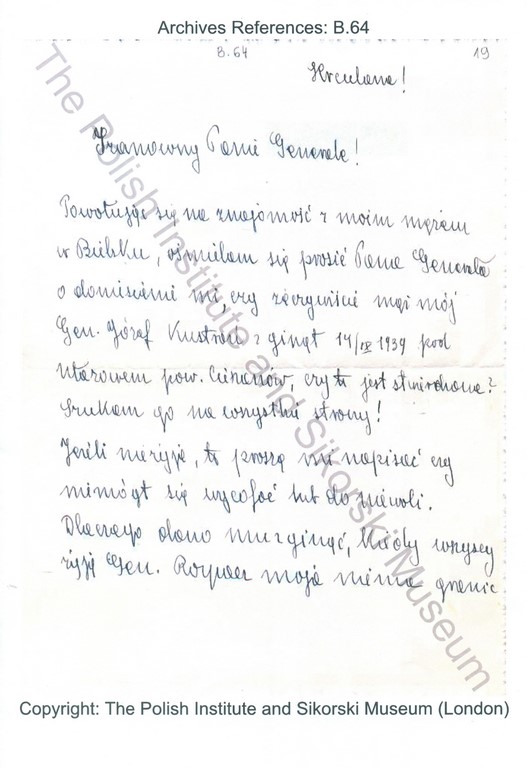 Archives References: B.64
B.64
19
Herculana!
Szanowny Panie Generale!
Powołując się na znajomość z moim mężem
w Bielsku, ośmielam się prosić Pana Generała
o doniesienie mi czy rzeczywiście mąż mój
Gen. Józef Kustroń zginął 14/IX 1939 pod
pow. czy to jest stwierdzone?
Szukam go na wszystkie strony!
Jeżeli nie żyje, to proszę mi napisać czy
nie mógł się wycofać lub do niewoli.
Dlaczego dano mu zginąć, kiedy wszyscy
żyją Gen. Rozpacz moja nie ma granic
The Polish Institute and Sikorski Museum
Copyright: The Polish Institute and Sikorski Museum (London)